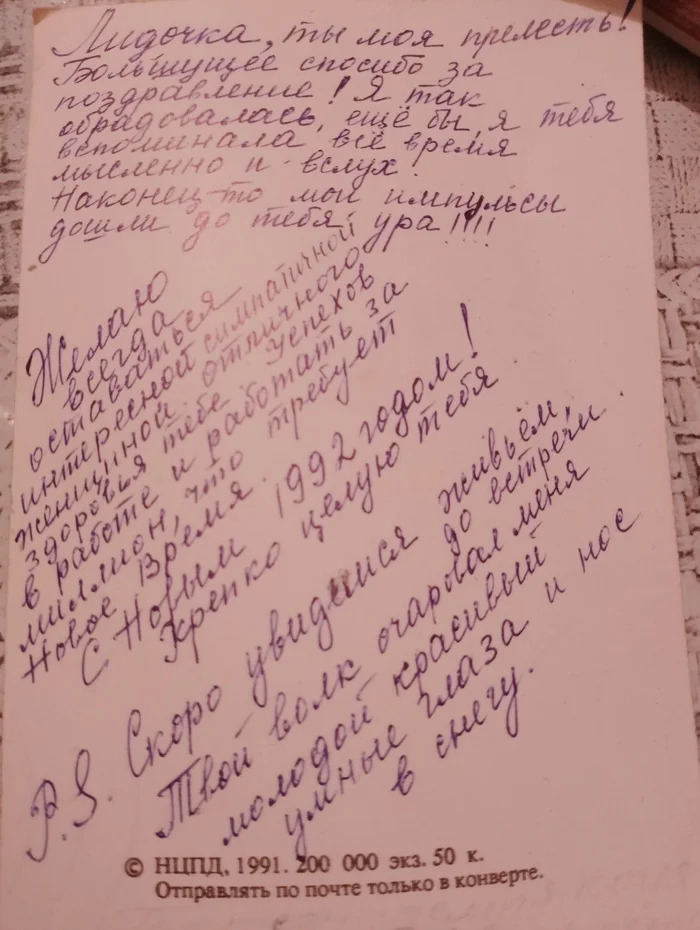 Лидочка, ты моя прелесть!
Большущее спосибо за
поздравление! Я так
обрадовалась, ещё бы, я тебя
вспоминала всё время
мысленно и вслух.
Наконец-то мои импульсы
дошли до тебя, ура!!!!
Желаю
всегда
оставаться
интересной симпатичной
женщиной. отличного
здоровья тебе. Успехов
в работе и работать за
миллион, что требует
Новое Время.
С Новым 1992 годом!
Крепко целую тебя
P.S. Скоро увидимся живьём
до встречи.
Твой волк очаровал меня
молодой красивый
умные глаза и нос
в снегу.
© НЦПД, 1991. 200 000 экз. 50 к.
Отправлять по почте только в конверте.